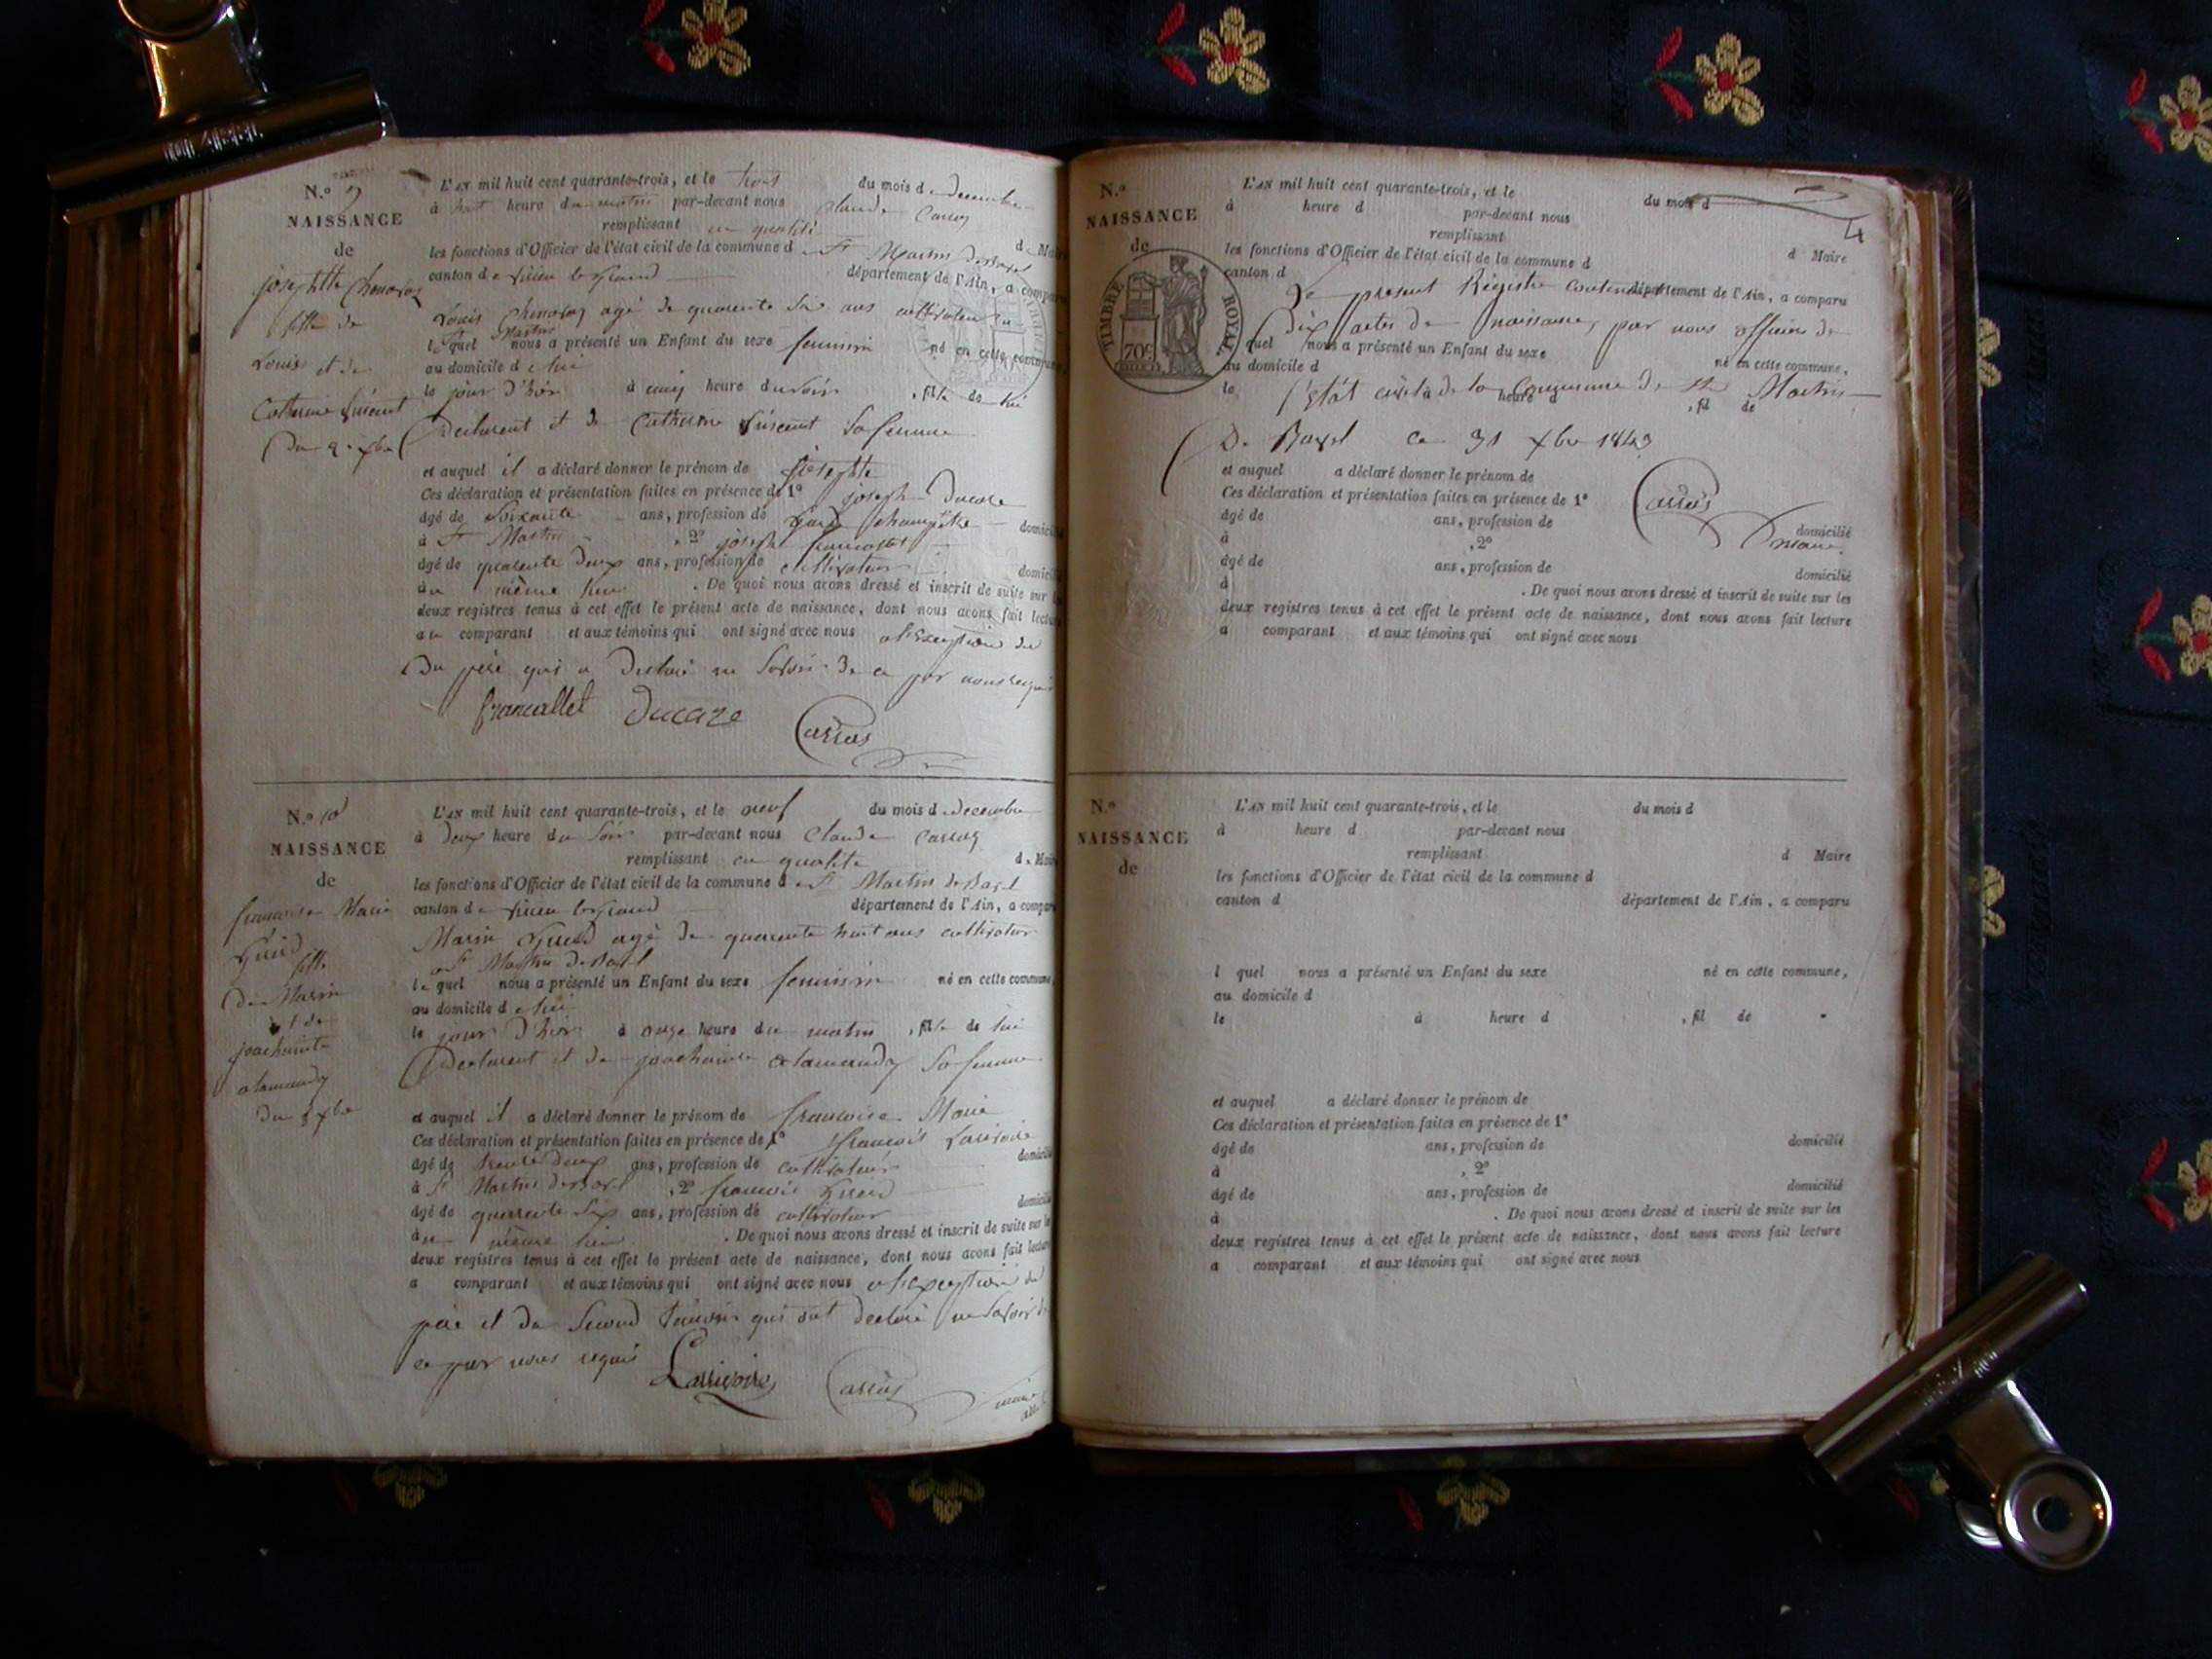 N.o 9
NAISSANCE
de
josephte Chenavaz
fille de
Louis et de
Catherine Vincent
Du 2 xbre
L'AN mil huit cent quarante-trois, et le trois du mois de decembre
à huit heure du matin par-devant nous Claude Carras
remplissant en qualité de Maire
les fonctions d'Officier de l'état civil de la commune de St Martin de Bavel
canton de virieu le grand département de l'Ain, a comparu
Louis Chenavaz agé de quarente six ans cultivateur a
St Martin
lequel nous a présenté un Enfant du sexe feminin né en cette commune,
au domicile de lui
le jour d'hier à cinq heure du soir, fille de lui
Declarent et de Catherine Vincent Sa femme
et auquel il a déclaré donner le prénom de josephte
Ces déclaration et présentation faites en présence de 1° joseph Ducare
âgé de Soixante ans, profession de garde champêtre domicilié
à St Martin, 2° joseph francallet
âgé de quarente deux ans, profession de cultivateur domicilié
au même lieu. De quoi nous avons dressé et inscrit de suite sur les
deux registres tenus à cet effet le présent acte de naissance, dont nous avons fait lecture
au comparant et aux témoins qui ont signé avec nous a l'Exception du
Du père qui a Declaré ne Savoir De ce par nous requis
francallet Ducare Carras
N.o 10
NAISSANCE
de
francoise Marie
fille
de Marin
et de
joachainte
alamandy
du 8 xbre
L'AN mil huit cent quarante-trois, et le neuf du mois de decembre
à deux heure du Soir par-devant nous Claude Carras
remplissant en qualité de Maire
les fonctions d'Officier de l'état civil de la commune de St Martin de Bavel
canton de virieu le grand département de l'Ain, a comparu
Marin agé de quarente huit ans cultivateur
a St Martin de Bavel
lequel nous a présenté un Enfant du sexe feminin né en cette commune,
au domicile de lui
le jour d'hier à onze heure du matin, fille de lui
Declarent et de joachainte alamandy Sa femme
et auquel il a déclaré donner le prénom de francoise Marie
Ces déclaration et présentation faites en présence de 1° francois Larivoire
âgé de trente deux ans, profession de cultivateur domicilié
à St Martin de Bavel, 2° francois
âgé de quarente six ans, profession de cultivateur domicilié
au même lieu. De quoi nous avons dressé et inscrit de suite sur les
deux registres tenus à cet effet le présent acte de naissance, dont nous avons fait lecture
a comparant et aux témoins qui ont signé avec nous a l'exception du
père et du Second témoin qui ont declaré ne Savoir de
ce par nous requis
Larivoire Carras maire
N.o
NAISSANCE
de
TIMBRE ROYAL
70c
4
L'AN mil huit cent quarante-trois, et le du mois d
à heure d par-devant nous
remplissant d Maire
les fonctions d'Officier de l'état civil de la commune d
canton d département de l'Ain, a comparu
Le present Registre contenant
Dix actes de naissance, par nous officier de
l quel nous a présenté un Enfant du sexe né en cette commune,
au domicile d
le à heure d, fil de
l'Etat civil de la Commune de St Martin
De Bavel ce 31 xbre 1843
et auquel a déclaré donner le prénom de
Ces déclaration et présentation faites en présence de 1°
âgé de ans, profession de domicilié
à, 2°
âgé de ans, profession de domicilié
à. De quoi nous avons dressé et inscrit de suite sur les
deux registres tenus à cet effet le présent acte de naissance, dont nous avons fait lecture
a comparant et aux témoins qui ont signé avec nous
Carras
maire
N.o
NAISSANCE
de
L'AN mil huit cent quarante-trois, et le du mois d
à heure d par-devant nous
remplissant d Maire
les fonctions d'Officier de l'état civil de la commune d
canton d département de l'Ain, a comparu
l quel nous a présenté un Enfant du sexe né en cette commune,
au domicile d
le à heure d, fil de
et auquel a déclaré donner le prénom de
Ces déclaration et présentation faites en présence de 1°
âgé de ans, profession de domicilié
à, 2°
âgé de ans, profession de domicilié
à. De quoi nous avons dressé et inscrit de suite sur les
deux registres tenus à cet effet le présent acte de naissance, dont nous avons fait lecture
a comparant et aux témoins qui ont signé avec nous